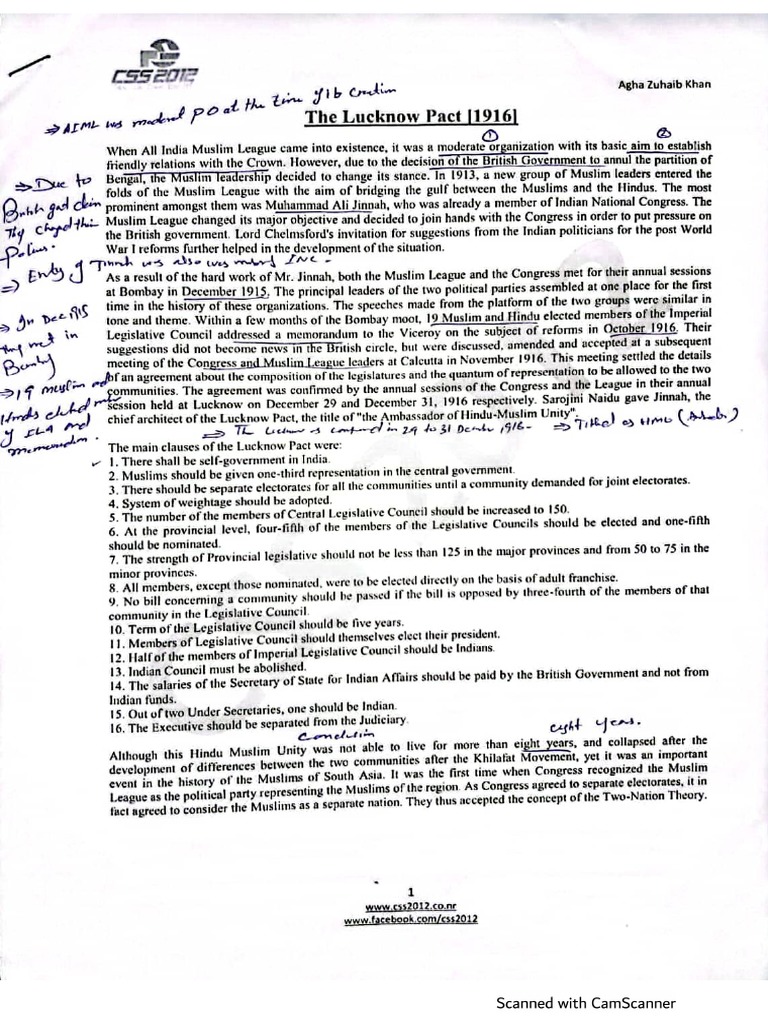 CSS2012
Agha Zuhaib Khan
⇒ AIML was moderat PO at the time of its creation
The Lucknow Pact [1916]
① ②
When All India Muslim League came into existence, it was a moderate organization with its basic aim to establish
friendly relations with the Crown. However, due to the decision of the British Government to annul the partition of
Bengal, the Muslim leadership decided to change its stance. In 1913, a new group of Muslim leaders entered the
folds of the Muslim League with the aim of bridging the gulf between the Muslims and the Hindus. The most
prominent amongst them was Muhammad Ali Jinnah, who was already a member of Indian National Congress. The
Muslim League changed its major objective and decided to join hands with the Congress in order to put pressure on
the British government. Lord Chelmsford's invitation for suggestions from the Indian politicians for the post World
War I reforms further helped in the development of the situation.
⇒ Due to
British
Thy chaged thir
⇒ Entry of Jinnah was also was member INC.
As a result of the hard work of Mr. Jinnah, both the Muslim League and the Congress met for their annual sessions
at Bombay in December 1915. The principal leaders of the two political parties assembled at one place for the first
time in the history of these organizations. The speeches made from the platform of the two groups were similar in
tone and theme. Within a few months of the Bombay moot, 19 Muslim and Hindu elected members of the Imperial
Legislative Council addressed a memorandum to the Viceroy on the subject of reforms in October 1916. Their
suggestions did not become news in the British circle, but were discussed, amended and accepted at a subsequent
meeting of the Congress and Muslim League leaders at Calcutta in November 1916. This meeting settled the details
of an agreement about the composition of the legislatures and the quantum of representation to be allowed to the two
communities. The agreement was confirmed by the annual sessions of the Congress and the League in their annual
session held at Lucknow on December 29 and December 31, 1916 respectively. Sarojini Naidu gave Jinnah, the
chief architect of the Lucknow Pact, the title of "the Ambassador of Hindu-Muslim Unity".
⇒ In Dec 1915
they met in
Bombay
⇒ 19 muslim and
Hindus elected
of ILA and
memorandum.
⇒ The in 29 to 31 December 1916- ⇒ Titled as HMU
The main clauses of the Lucknow Pact were:
1. There shall be self-government in India.
2. Muslims should be given one-third representation in the central government.
3. There should be separate electorates for all the communities until a community demanded for joint electorates.
4. System of weightage should be adopted.
5. The number of the members of Central Legislative Council should be increased to 150.
6. At the provincial level, four-fifth of the members of the Legislative Councils should be elected and one-fifth
should be nominated.
7. The strength of Provincial legislative should not be less than 125 in the major provinces and from 50 to 75 in the
minor provinces.
8. All members, except those nominated, were to be elected directly on the basis of adult franchise.
9. No bill concerning a community should be passed if the bill is opposed by three-fourth of the members of that
community in the Legislative Council.
10. Term of the Legislative Council should be five years.
11. Members of Legislative Council should themselves elect their president.
12. Half of the members of Imperial Legislative Council should be Indians.
13. Indian Council must be abolished.
14. The salaries of the Secretary of State for Indian Affairs should be paid by the British Government and not from
Indian funds.
15. Out of two Under Secretaries, one should be Indian.
16. The Executive should be separated from the Judiciary.
Conclusion eight years.
Although this Hindu Muslim Unity was not able to live for more than eight years, and collapsed after the
development of differences between the two communities after the Khilafat Movement, yet it was an important
event in the history of the Muslims of South Asia. It was the first time when Congress recognized the Muslim
League as the political party representing the Muslims of the region. As Congress agreed to separate electorates, it in
fact agreed to consider the Muslims as a separate nation. They thus accepted the concept of the Two-Nation Theory.
1
www.css2012.co.nr
www.facebook.com/css2012
Scanned with CamScanner